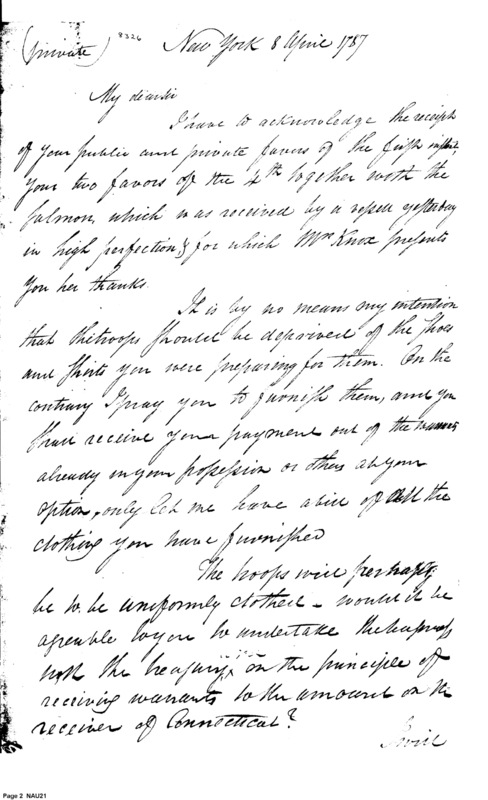 (private) 8326 New York 8 April 1787
My dear sir
I have to acknowledge the receipt
of your public and private favors of the first instant,
your two favors of the 4th together with the
Salmon, which was received by a vessel yesterday
in high perfection, & for which Mrs Knox presents
you her thanks.
It is by no means my intention
that the troops should be deprived of the Shoes
and Shirts you were preparing for them. On the
contrary I pray you to furnish them, and you
shall receive your payment out of the
already in your possession or others at your
option, only let me have a bill of all the
clothing you have furnished
The troops will perhaps
be to be uniformly clothed - would it be
agreable to you to undertake the
with the treasury, on the principle of
receiving warrants to the amount on the
receiver of Connecticut?
I will
Page 2 NAU21